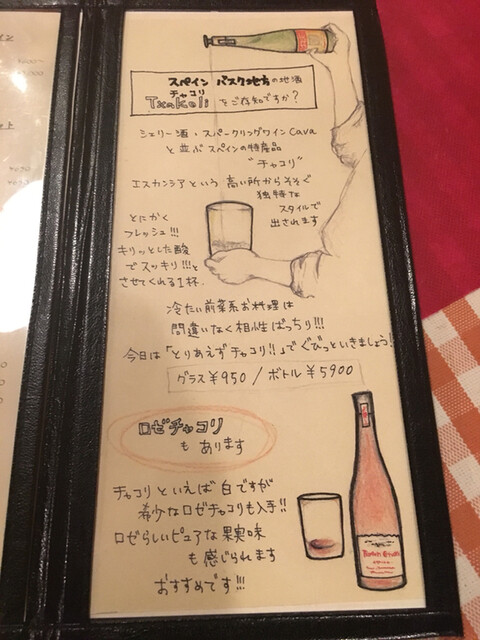 スペイン バスク地方の地酒
チャコリ
Txakoli をご存知ですか?
シェリー酒・スパークリングワイン Cava
と並ぶ スペインの特産品
"チャコリ"
エスカンシア という 高い所からそそぐ
独特な
スタイルで
出されます
とにかく
フレッシュ!!!
キリッとした酸
でスッキリ!!!と
させてくれる1杯.
冷たい前菜系お料理は
間違いなく相性ばっちり!!!
今日は「とりあえずチャコリ!!」で ぐびっといきましょう!
グラス ¥950 / ボトル ¥5900
ロゼチャコリ
も あります
チャコリ といえば 白ですが
希少なロゼチャコリも入手!!
ロゼらしいピュアな果実味
も感じられます
おすすめです!!!